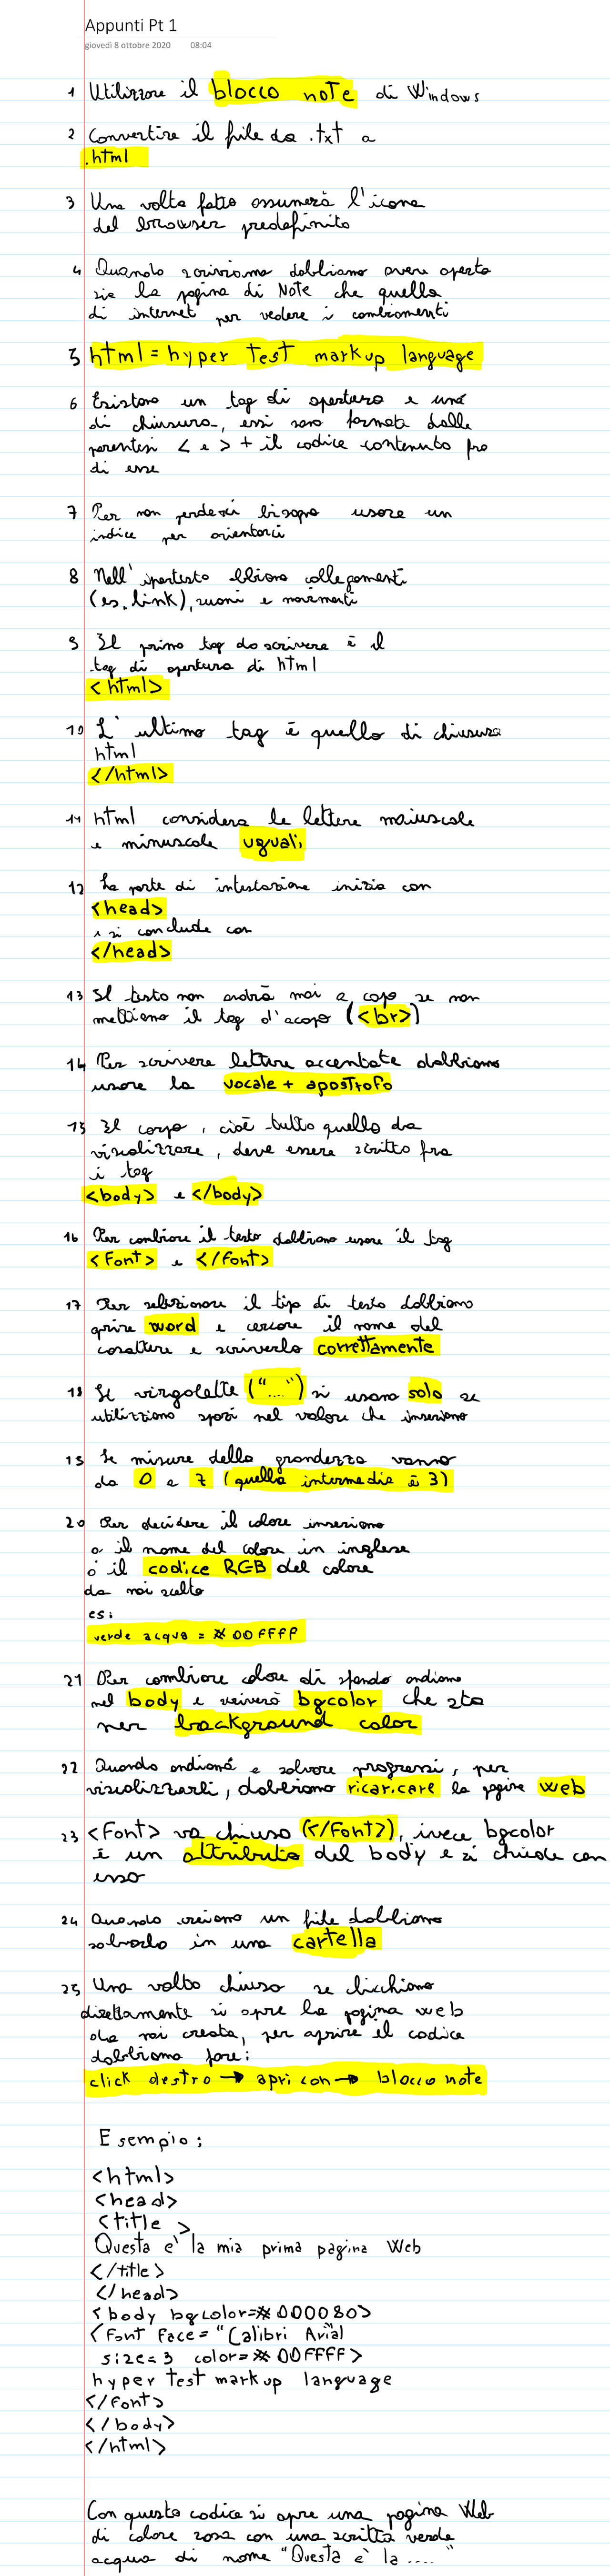 Appunti Pt 1
giovedì 8 ottobre 2020 08:04
1 Utilizzare il blocco note di Windows
2 Convertire il file da .txt a
.html
3 Una volta fatto assumerà l'icona
del browser predefinito
4 Quando scriviamo dobbiamo avere aperta
sia la pagina di Note che quella
di internet per vedere i cambiamenti
5 html = hyper test markup language
6 Esistono un tag di apertura e uno
di chiusura, essi sono formati dalle
parentesi < e > + il codice contenuto fra
di esse
7 Per non perderci bisogna usare un
indice per orientarci
8 Nell' ipertesto abbiamo collegamenti
(es. link), suoni e movimenti
9 Il primo tag da scrivere è il
tag di apertura di html
<html>
10 L' ultimo tag è quello di chiusura
html
</html>
11 html considera le lettere maiuscole
e minuscole uguali
12 La parte di intestazione inizia con
<head>
e si conclude con
</head>
13 Il testo non andrà mai a capo se non
mettiamo il tag d'acapo (<br>)
14 Per scrivere lettere accentate dobbiamo
usare la vocale + apostrofo
15 Il corpo, cioè tutto quello da
visualizzare, deve essere scritto fra
i tag
<body> e </body>
16 Per cambiare il testo dobbiamo usare il tag
<Font> e </font>
17 Per selezionare il tipo di testo dobbiamo
aprire word e cercare il nome del
carattere e scriverlo correttamente
18 Le virgolette ("....") si usano solo se
utilizziamo spazi nel valore che inseriamo
19 Le misure della grandezza vanno
da 0 a 7 (quella intermedia è 3)
20 Per decidere il colore inseriamo
o il nome del colore in inglese
o il codice RGB del colore
da noi scelto
es:
verde acqua = #00FFFF
21 Per cambiare colore di sfondo andiamo
nel body e scriverò bgcolor che sta
per background color
22 Quando andiamo a salvare progressi, per
visualizzarli, dobbiamo ricaricare la pagina web
23 <Font> va chiuso (</Font>), invece bgcolor
è un attributo del body e si chiude con
esso
24 Quando creiamo un file dobbiamo
salvarlo in una cartella
25 Una volta chiuso se clicchiamo
direttamente si apre la pagina web
da noi creata, per aprire il codice
dobbiamo fare:
click destro → apri con → blocco note
Esempio:
<html>
<head>
<title >
Questa è la mia prima pagina Web
</title>
</head>
<body bgcolor=#000080>
<Font Face="Calibri Arial"
size=3 color=#00FFFF>
hyper test markup language
</font>
</body>
</html>
Con questo codice si apre una pagina Web
di colore rosa con una scritta verde
acqua di nome "Questa è la ...."